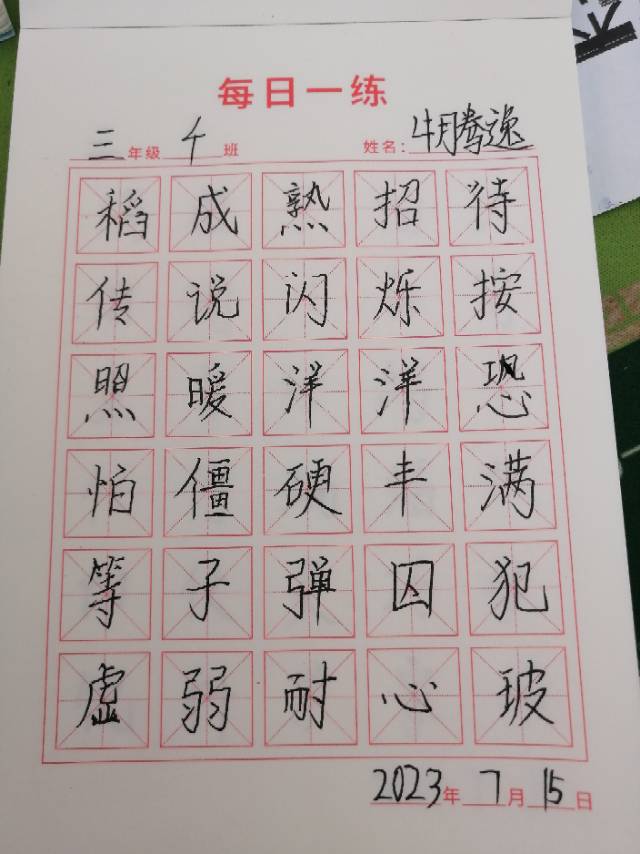 每日一练
三年级 千班 姓名:牛腾逸
稻成熟招待
传说闪烁按
照暖洋洋恐
怕僵硬丰满
等子弹囚犯
虚弱耐心玻
2023年7月15日